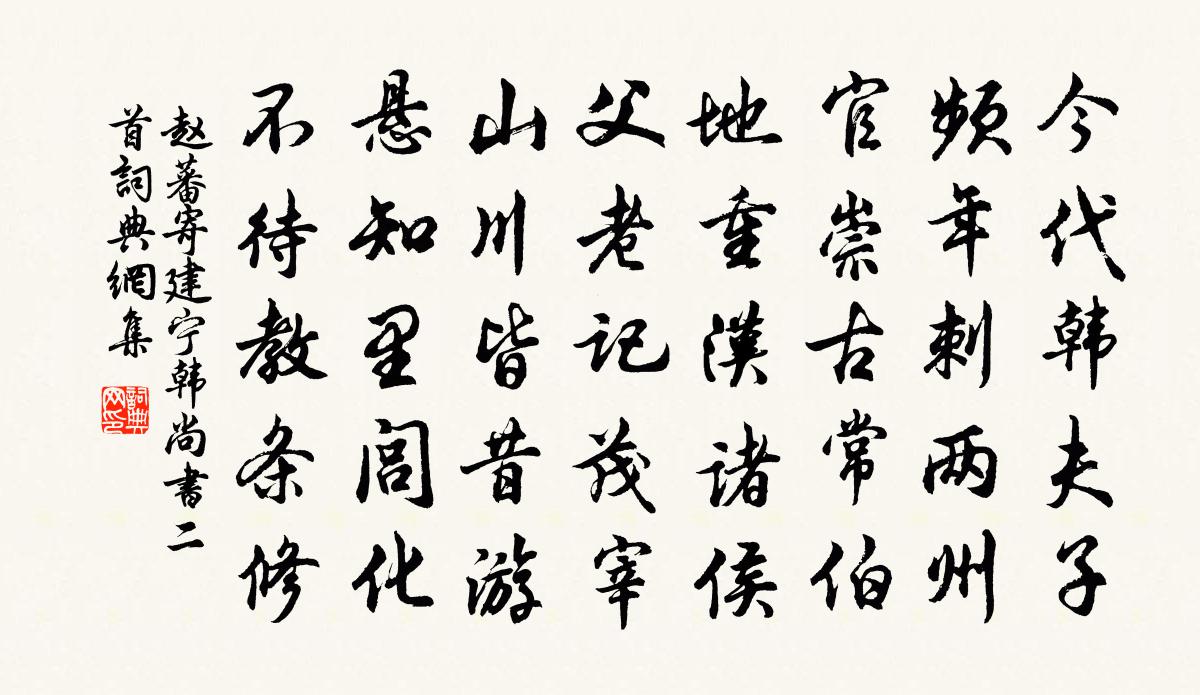 今代韩夫子
频年刺两州
官崇古常伯
地重汉诸侯
父老记茂宰
山川皆昔游
悬知里闾化
不待教条修
赵蕃寄建宁韩尚书二
首詞典網集
詞典网印